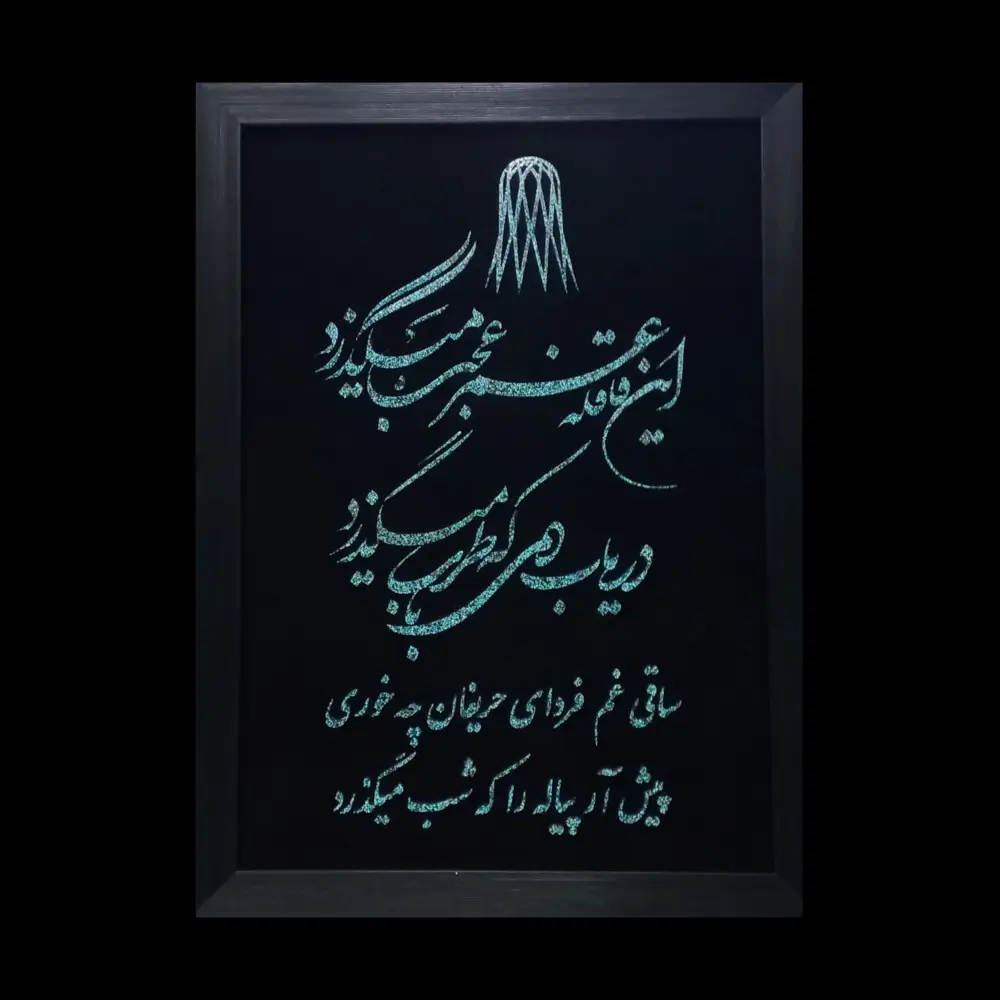 این قافله عمر عجب میگذرد
دریاب دمی که با طرب میگذرد
ساقی غم فردای حریفان چه خوری
پیش آر پیاله را که شب میگذرد